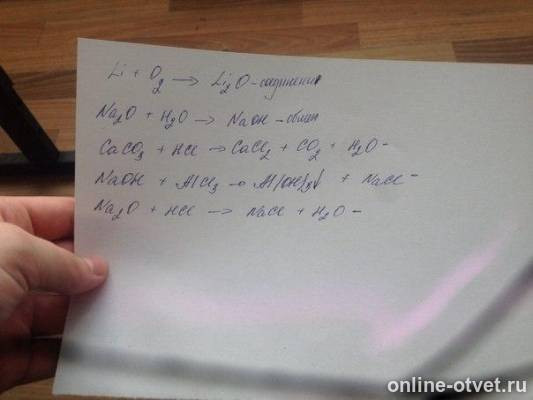 Li + O₂ → Li₂O - соединения
Na₂O + H₂O → NaOH - обмен
CaCO₃ + HCl → CaCl₂ + CO₂ + H₂O -
NaOH + AlCl₃ → Al(OH)₃↓ + NaCl -
Na₂O + HCl → NaCl + H₂O -
online-otvet.ru